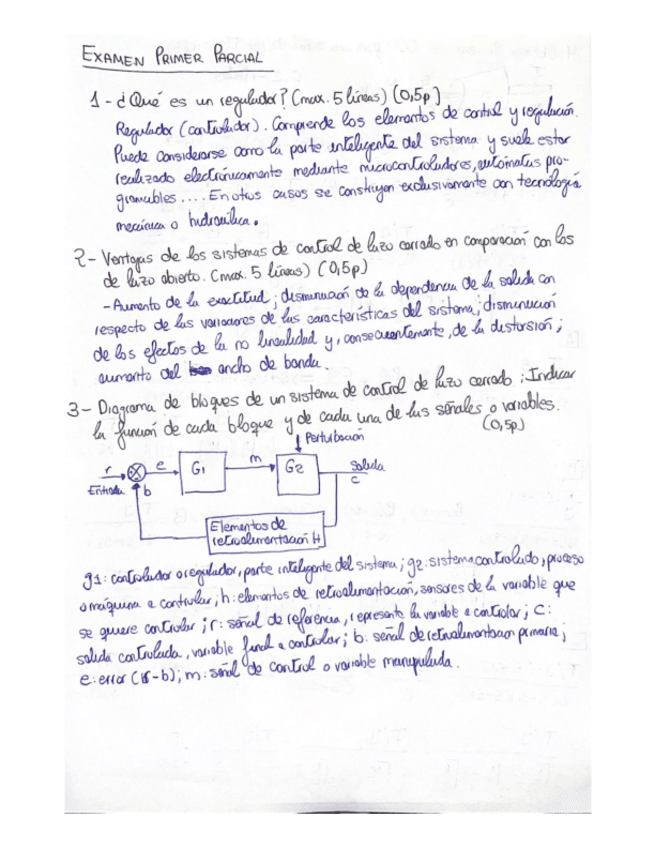 EXAMEN PRIMER PARCIAL
1- ¿Qué es un regulador? (max. 5 líneas) (0,5p)
Regulador (controlador). Comprende los elementos de control y regulación.
Puede considerarse como la parte inteligente del sistema y suele estar
realizado electrónicamente mediante microcontroladores, autómatas pro-
gramables .... En otros casos se construyen exclusivamente con tecnología
mecánica o hidraúlica.
2- Ventajas de los sistemas de control de lazo cerrado en comparación con los
de lazo abierto. (max. 5 líneas) (0,5p)
- Aumento de la exactitud; disminuación de la dependencia de la salida con
respecto de las variaciones de las características del sistema; disminución
de los efectos de la no linealidad y, consecuentemente, de la distorsión;
aumento del ancho de banda.
3- Diagrama de bloques de un sistema de control de lazo cerrado; Indicar
la función de cada bloque y de cada una de las señales o variables.
(0,5p)
Perturbación
r
e
G1
m
G2
salida
c
Entrada
b
Elementos de
retroalimentación H
g1: controlador o regulador, parte inteligente del sistema; g2: sistema controlado, proceso
o máquina a controlar; h: elementos de retroalimentación, sensores de la variable que
se quiere controlar; r: señal de referencia, representa la variable a controlar; C:
salida controlada, variable final a controlar; b: señal de retroalimentacion primaria;
e: error (r-b); m: señal de control o variable manipulada.